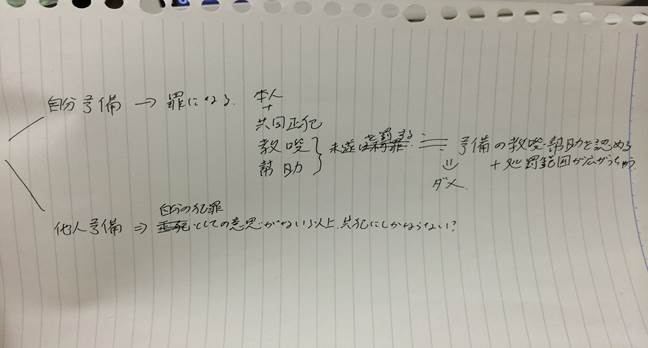 自分予備 → 罪になる。
本人
+
共同正犯
教唆
幇助
未遂は
を罰する
予備の教唆・幇助を認める
+処罰範囲が広がっちゃう
⇓
ダメ
他人予備 ⇒
自分の犯罪
としての意思がない以上、共犯にしかならない?